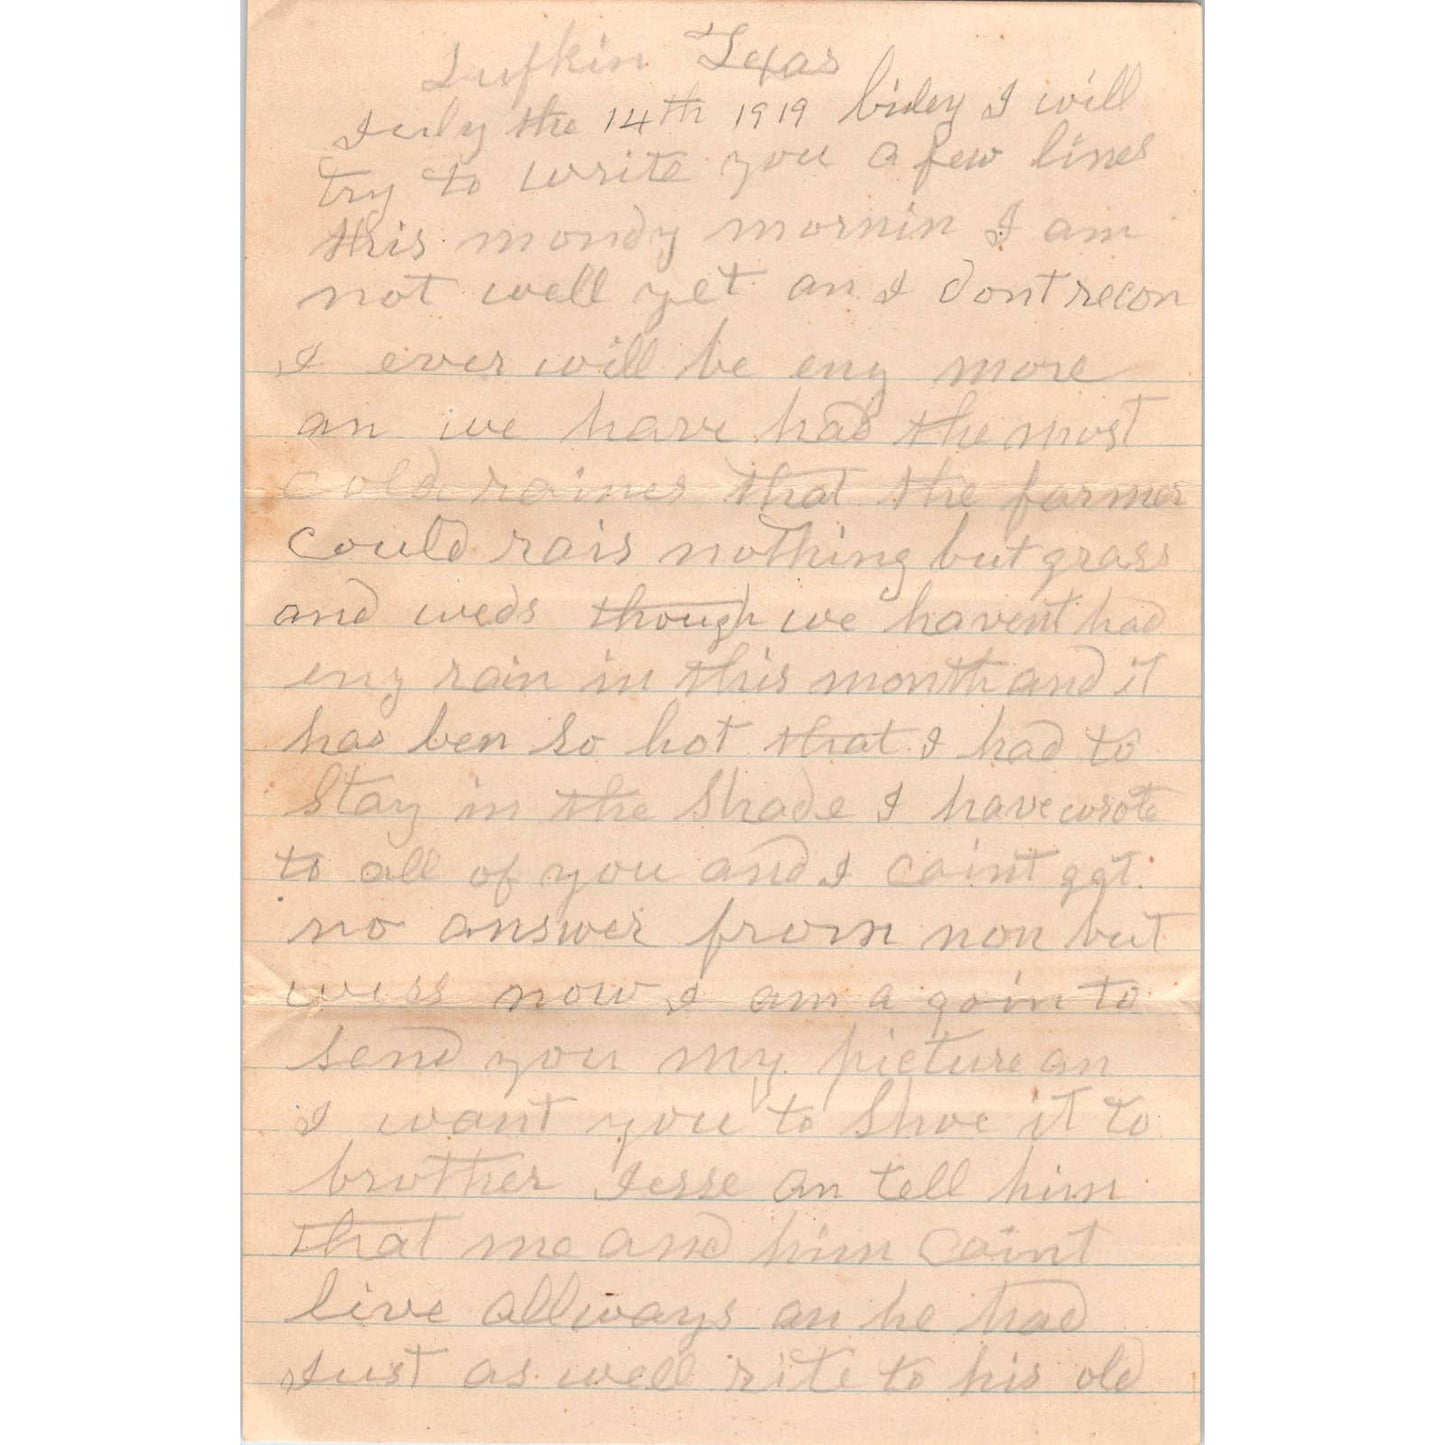 Lufkin Texas
July the 14th 1919 bidey I will
try to write you a few lines
this mondy mornin I am
not well yet an I dont recon
I ever will be eny more
an we have had the most
cold raines that the farmer
could rais nothing but grass
and weds though we havent had
eny rain in this month and it
has ben so hot that I had to
stay in the shade I have wrote
to all of you and I caint get
no answer from non but
now I am a goin to
send you my picture an
I want you to shoe it to
brother Jesse an tell him
that me and him caint
live allways an he had
Just as well rite to his old